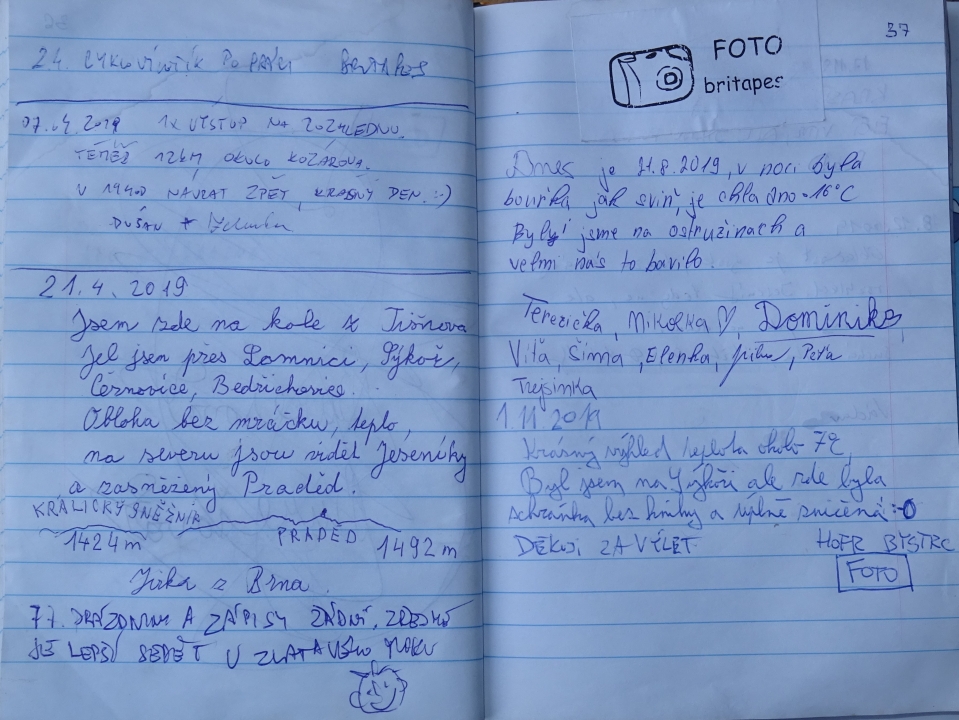 24.
07.04.2019 1x VÝSTUP NA ROZHLEDNU.
TÉMĚŘ 12KM OKOLO KOZÁROVA.
V 1940 NÁVRAT ZPĚT, KRÁSNÝ DEN. :-)
DUŠAN +
21.4.2019
Jsem zde na kole z Tišnova
Jel jsem přes Lomnici, Sýkoř,
Černovice, Bedřichovice.
Obloha bez mráčku, teplo,
na severu jsou vidět Jeseníky
a zasněžený Praděd.
KRÁLICKÝ SNĚŽNÍK
1424m PRADĚD 1492m
Jirka z Brna
7.7. PRÁZDNINY A ZÁPISY ŽÁDNÝ,
JE LEPŠÍ SEDĚT U ZLATAVÉHO MOKU
37
FOTO
britapes
Dnes je 21.8.2019, v noci byla
bouřka jak sviň, je chladno - 16°C
Byly jsme na ostružinach a
velmi nás to bavilo.
Terezička, Nikolka ♡, Dominika,
Víťa, Šima, Elenka, Peťa
1.11 2019
Krásný výhled teplota okolo 7°C,
Byl jsem na Sýkoři ale zde byla
schránka bez knihy a úplně zničená :-O
DĚKUJI ZA VÝLET HOFR BYSTRC
FOTO